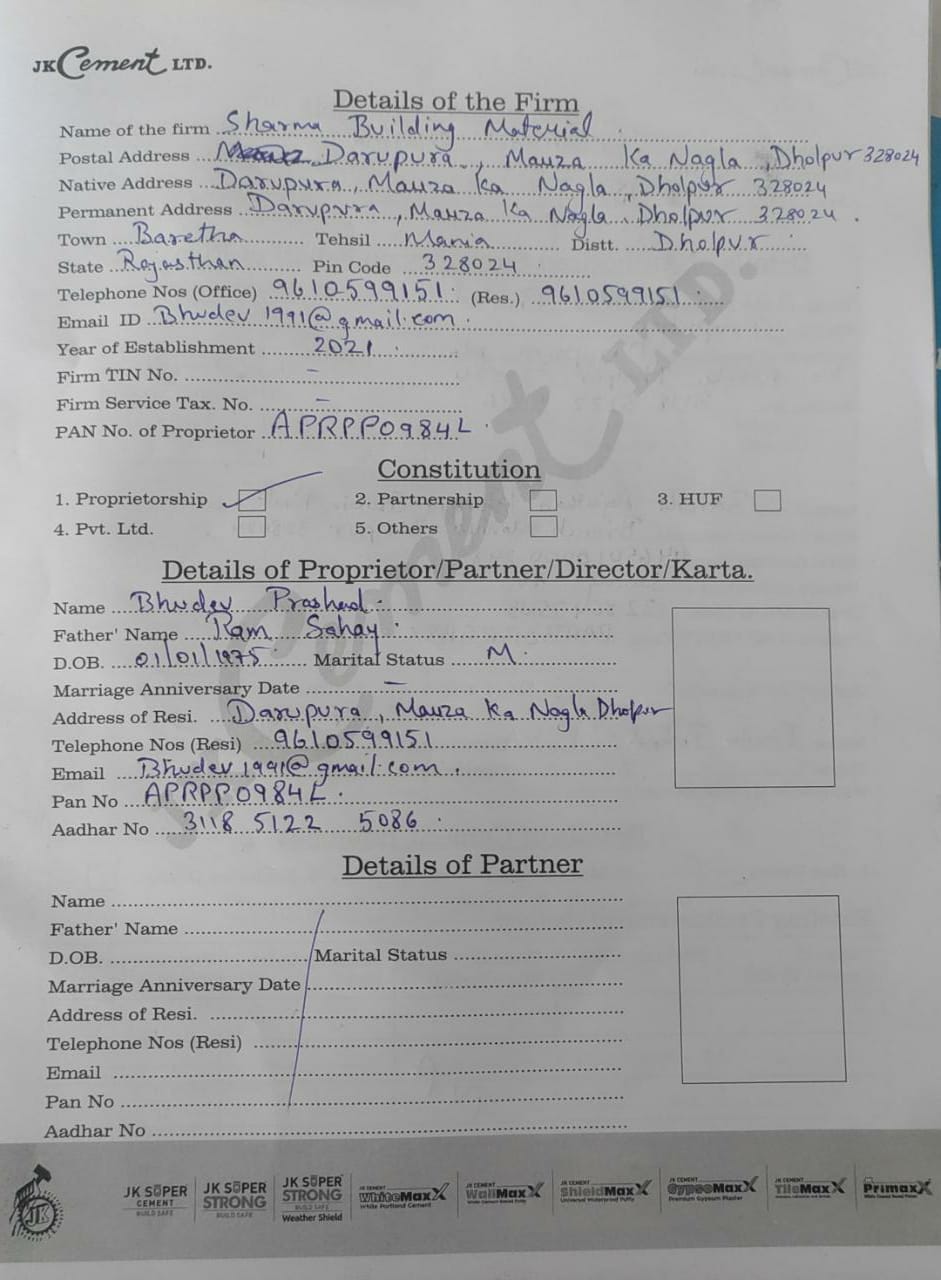 JK Cement LTD.
Details of the Firm
Name of the firm Sharma Building Material
Postal Address Darupura, Mauza Ka Nagla, Dholpur 328024
Native Address Darupura, Mauza Ka Nagla, Dholpur 328024
Permanent Address Darupura, Mauza Ka Nagla, Dholpur 328024.
Town Baretha Tehsil Mania Distt. Dholpur
State Rajasthan Pin Code 328024
Telephone Nos (Office) 9610599151 (Res.) 9610599151
Email ID Bhudev1991@gmail.com
Year of Establishment 2021
Firm TIN No. –
Firm Service Tax. No. –
PAN No. of Proprietor APRPP0984L
Constitution
1. Proprietorship ✓ 2. Partnership 3. HUF
4. Pvt. Ltd. 5. Others
Details of Proprietor/Partner/Director/Karta.
Name Bhudev Prashad
Father' Name Ram Sahay
D.OB. 01/01/1975 Marital Status M
Marriage Anniversary Date –
Address of Resi. Darupura, Mauza Ka Nagla Dholpur
Telephone Nos (Resi) 9610599151
Email Bhudev1991@gmail.com
Pan No APRPP0984L
Aadhar No 3118 5122 5086
Details of Partner
Name
Father' Name
D.OB. Marital Status
Marriage Anniversary Date
Address of Resi.
Telephone Nos (Resi)
Email
Pan No
Aadhar No
JK SUPER CEMENT BUILD SAFE
JK SUPER STRONG BUILD SAFE
JK SUPER STRONG BUILD SAFE Weather Shield
JK CEMENT WhiteMaxX White Portland Cement
JK CEMENT WallMaxX
JK CEMENT ShieldMaxX Premium Waterproof Putty
JK CEMENT GypsoMaxX Premium Gypsum Plaster
JK CEMENT TileMaxX
JK CEMENT PrimaxX